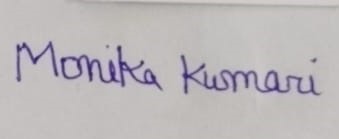 Monika Kumari